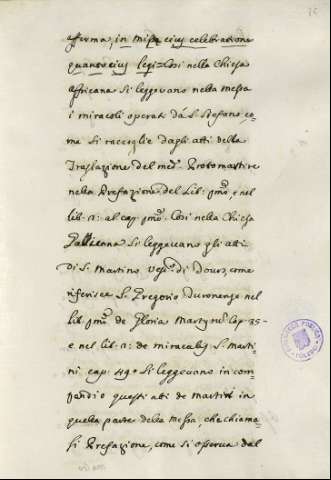 afferma, in missa eius celebratione
quantocius legi = Così nella Chiesa
Affricana si leggevano nella messa
i miracoli operati da S. Stefano co-
me si raccoglie dagli atti della
Traslazione del med.º Protomartire
nella Prefazione del Lib: pmo, e nel
lib. 2: al cap: pmo. Così nella Chiesa
Gallicana si leggevano gli atti
di S. Martino Vesc.º di Tours, come
riferisce S. Gregorio Turonense nel
lib: pmo de Gloria Martyrũ Cap. 35-
e nel lib. 2: de miracolis S. Marti-
ni cap: 49. Si leggevano in com-
pendio questi atti de martiri in
quella parte della Messa, che chiama-
si Prefazione, come si osserva dal
BIBLIOTECA PUBLICA
TOLEDO